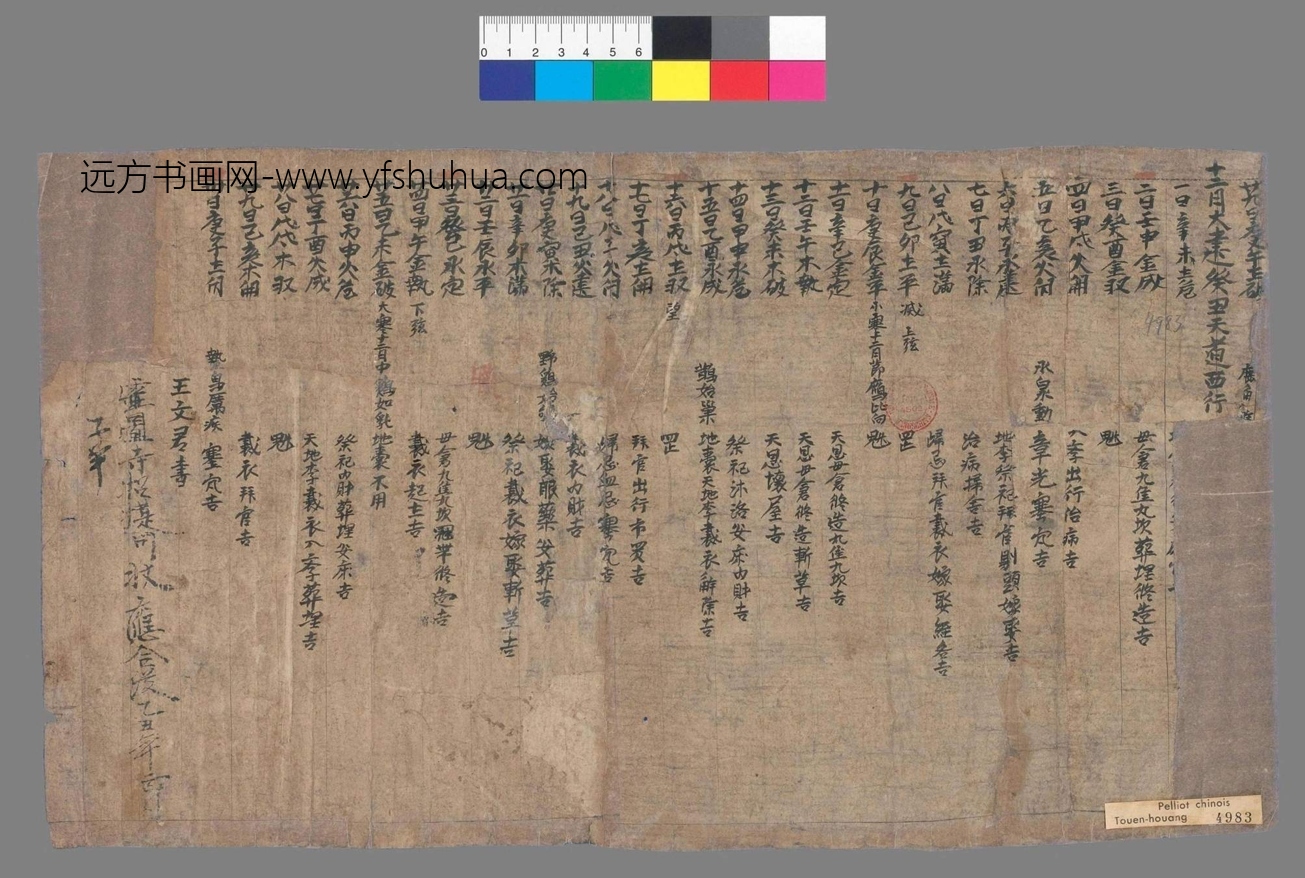 远方书画网-www.yfshuhua.com
0 1 2 3 4 5 6
廿九日庚午土破 鹿角
十二月大建癸丑天道西行
一日辛未土危
二日壬申金成 母倉九焦九坎葬埋修造吉
三日癸酉金收 魁
四日甲戌火開 入李出行治病吉
五日乙亥火閉 水泉動 章光塞穴吉
六日丙子水建 地李祭祀拜官剃頭嫁娶吉
七日丁丑水除 治病掃舍吉
八日戊寅土滿 歸忌拜官裁衣嫁娶經絡吉
九日己卯土平 滅 上弦 罡
十日庚辰金平 小寒十二月節鴈北向 魁
十一日辛巳金定 天恩母倉修造九焦九坎吉
十二日壬午木執 天恩母倉修造斬草吉
十三日癸未木破 天恩壞屋吉
十四日甲申水危 祭祀沐浴安床內財吉
十五日乙酉水成 鵲始巢 地囊天地李裁衣解除吉
十六日丙戌土收 望 罡
十七日丁亥土開 拜官出行市買吉
十八日戊子火閉 歸忌血忌塞穴吉
十九日己丑火建 裁衣內財吉
廿日庚寅木除 野鷄始 嫁娶服藥安葬吉
廿一日辛卯木滿 祭祀裁衣嫁娶斬草吉
廿二日壬辰水平 魁
廿三日癸巳水定 母倉九焦九坎冠笄修造吉
廿四日甲午金執 下弦 裁衣起土吉
廿五日乙未金破 大寒十二月中鷄始乳 地囊不用
廿六日丙申火危 祭祀內財葬埋安床吉
廿七日丁酉火成 天地李裁衣入李葬埋吉
廿八日戊戌木收 魁
廿九日己亥木開 裁衣拜官吉
卅日庚子土閉 鷙鳥厲疾 塞穴吉
王文君書
靈 寺 應合從乙丑年
4983
Pelliot chinois
Touen-houang 4983